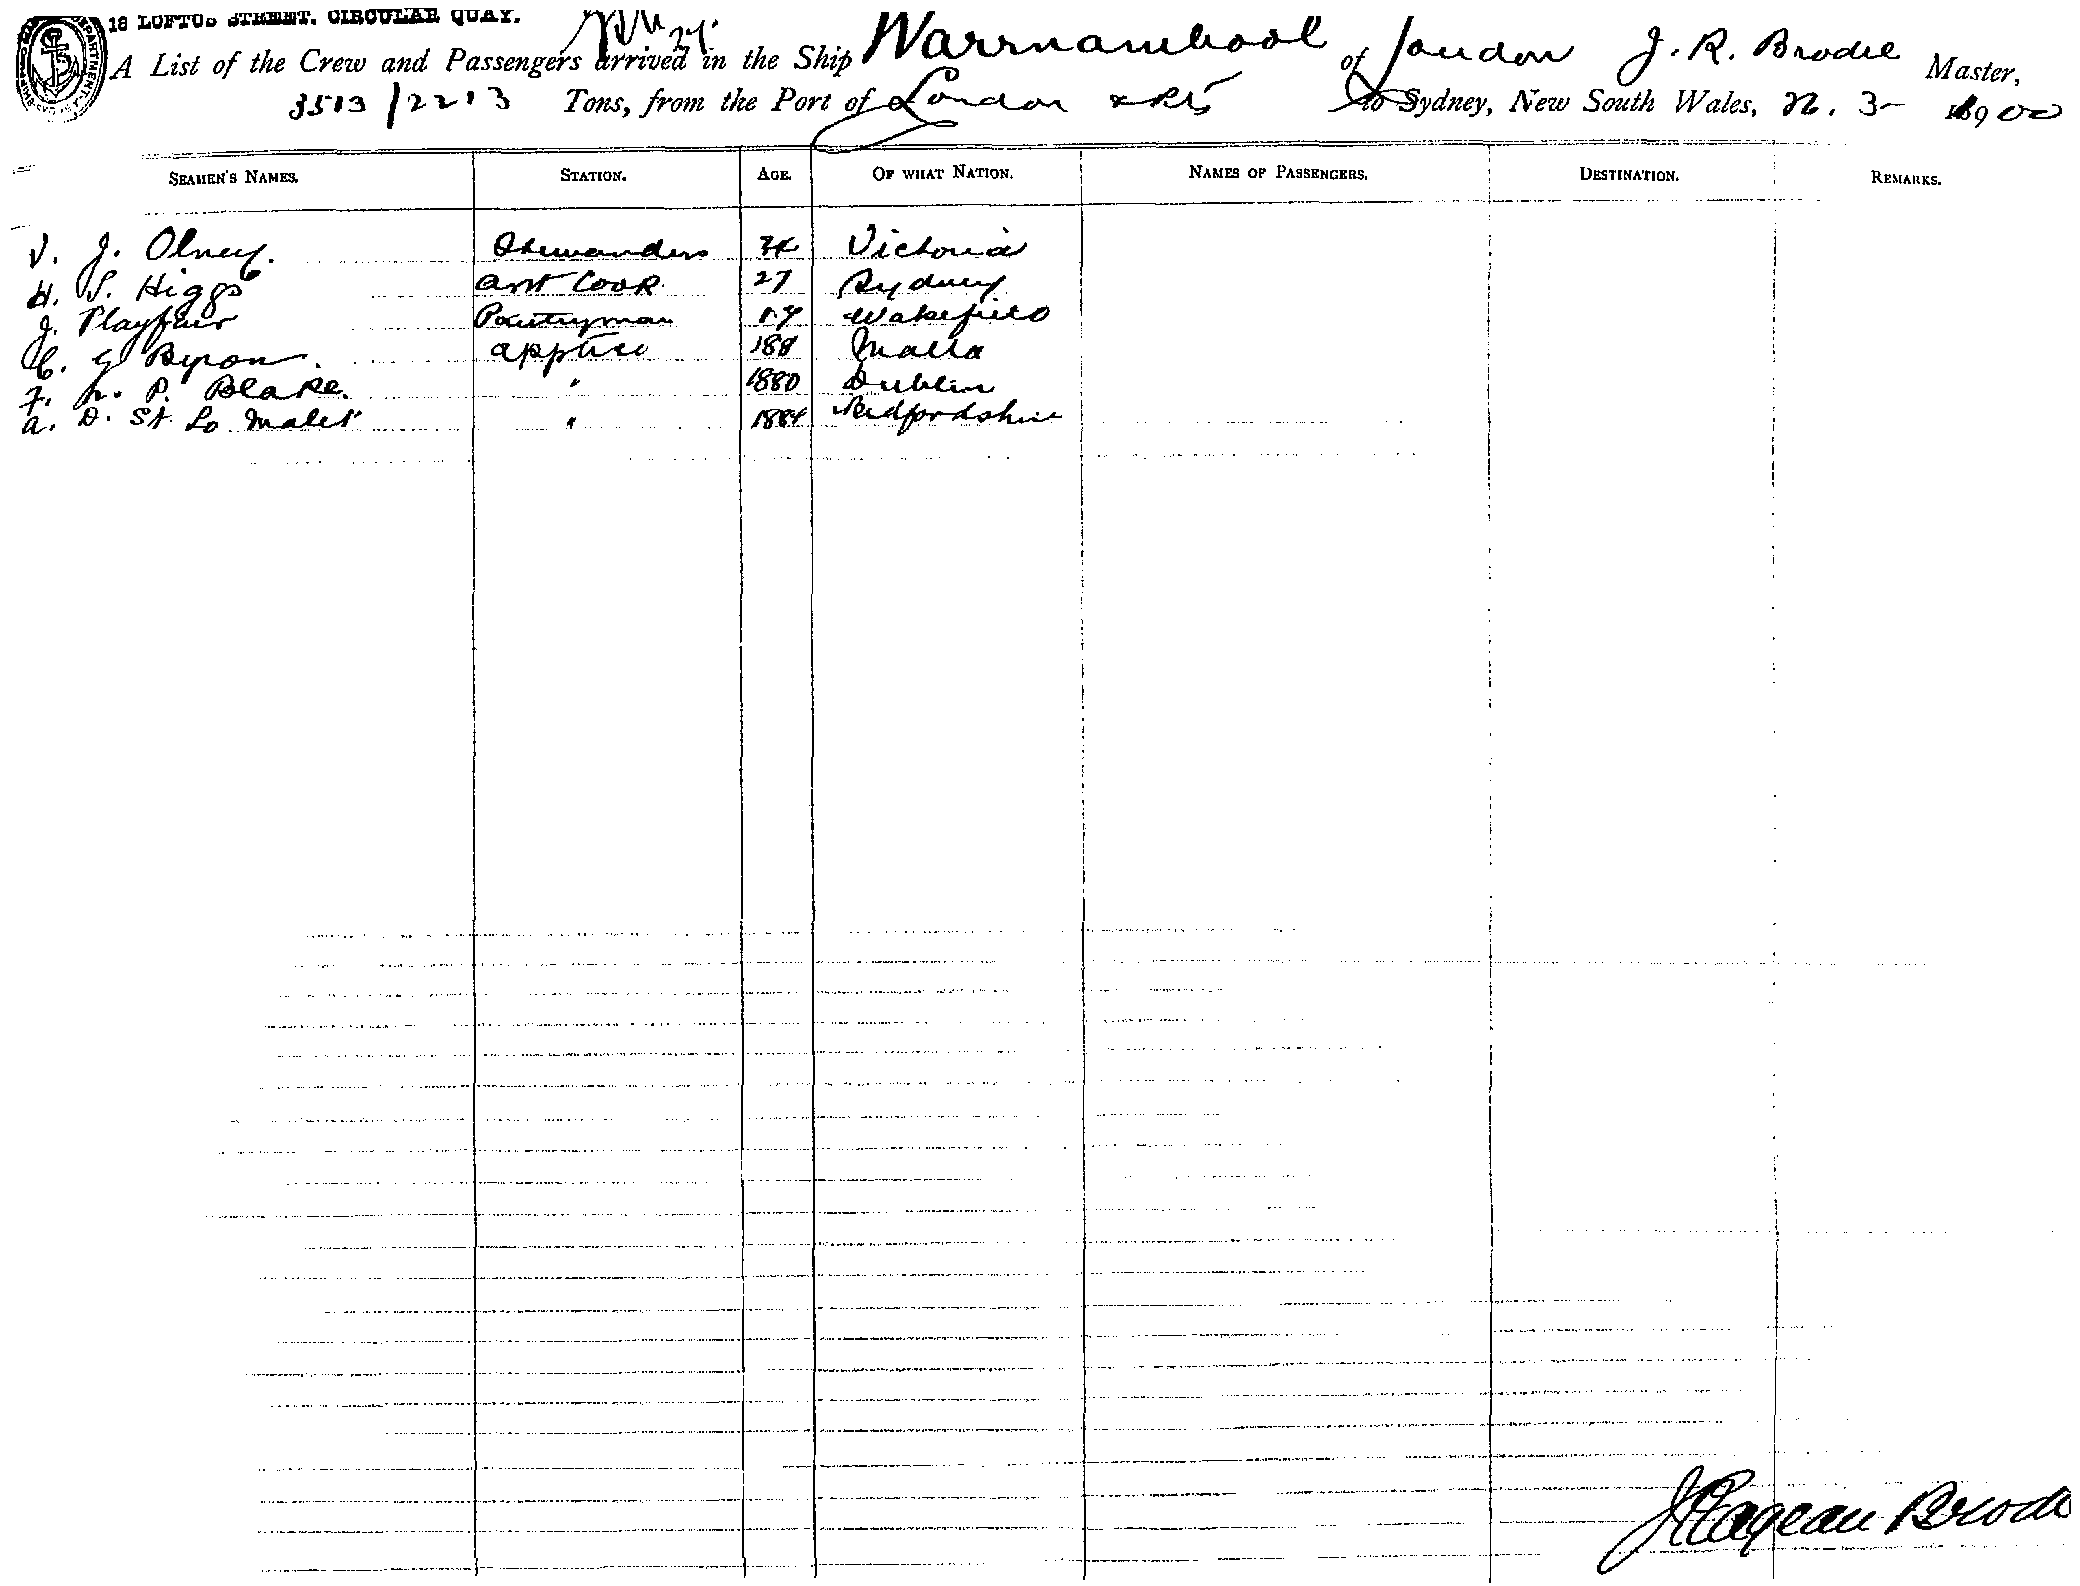 18 LOFTUS STREET. CIRCULAR QUAY.
A List of the Crew and Passengers arrived in the Ship Warrnambool of London J. R. Brodie Master,
3513/2213 Tons, from the Port of London & Pts to Sydney, New South Wales, 22. 3- 1900
SEAMEN'S NAMES. STATION. AGE. OF WHAT NATION. NAMES OF PASSENGERS. DESTINATION. REMARKS.
J. Olney. 34 Victoria
H. S. Higgs Asst Cook 27 Sydney
J. Playfair Pantryman 17 Wakefield
C. G Byron. apptice 188 Malta
F. P. Blake. " 1880 Dublin
A. D. St. Lo Malet " 1884 Bedfordshire
Brodie